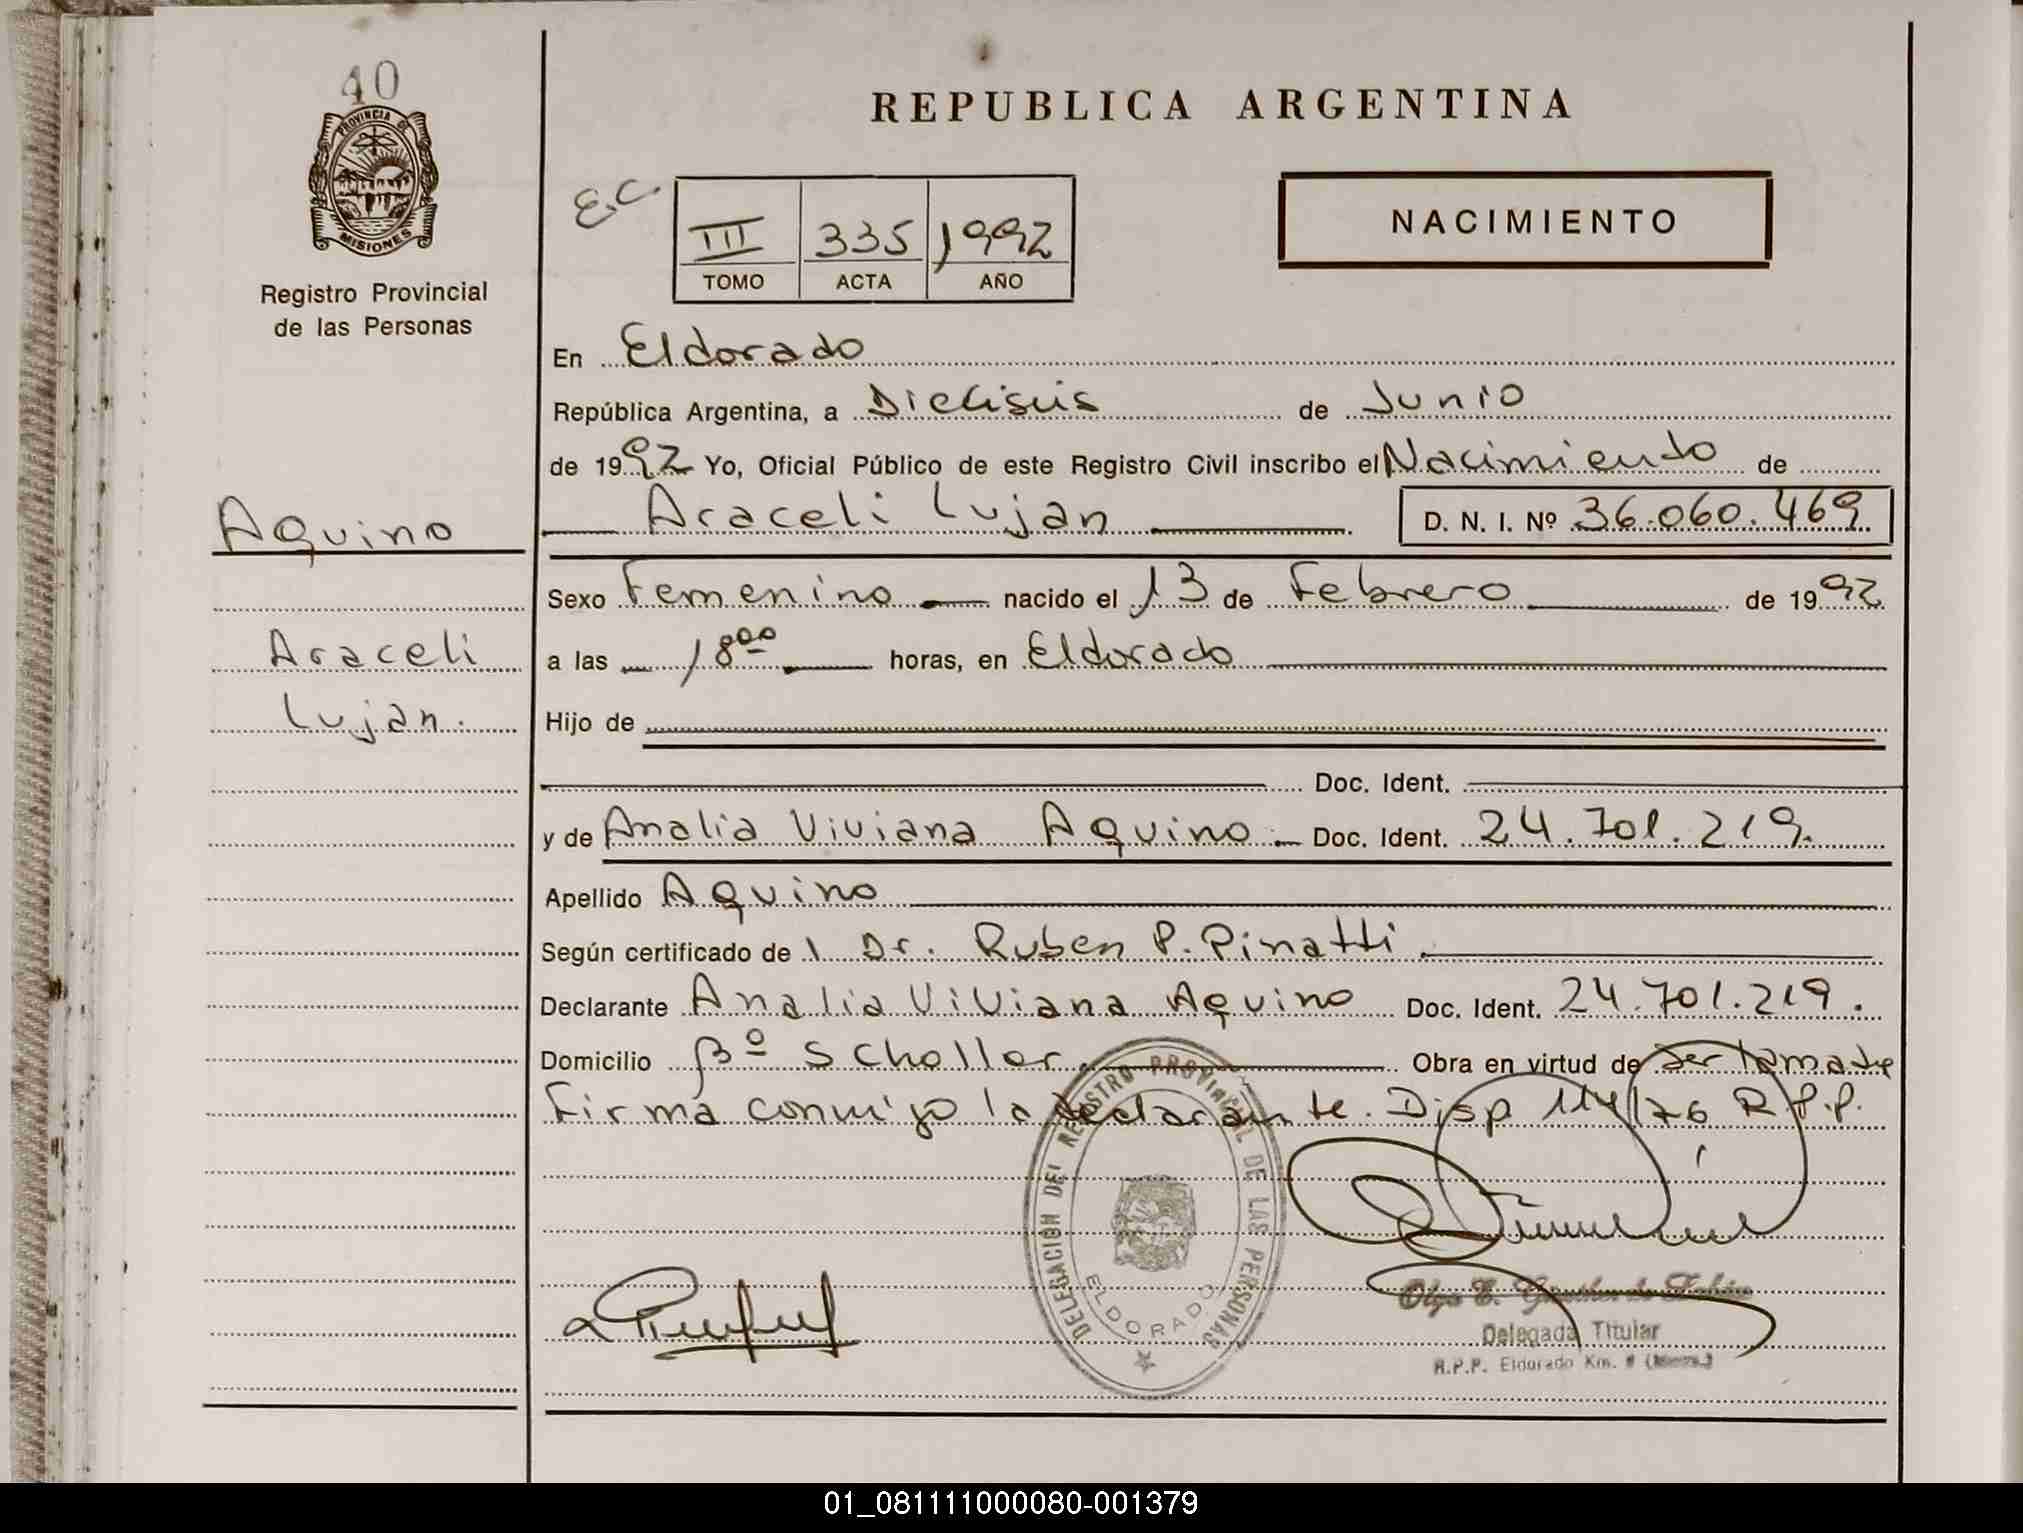 40
PROVINCIA DE
MISIONES
Registro Provincial
de las Personas
REPUBLICA ARGENTINA
E.C.
III 335 1992
TOMO ACTA AÑO
NACIMIENTO
En Eldorado
República Argentina, a Dieciseis de Junio
de 1992 Yo, Oficial Público de este Registro Civil inscribo el Nacimiento de
Aquino
Araceli Lujan D. N. I. Nº 36.060.469
Sexo Femenino nacido el 13 de Febrero de 1992
Araceli
a las 18 00 horas, en Eldorado
Lujan.
Hijo de
Doc. Ident.
y de Analia Viviana Aquino Doc. Ident. 24.701.219.
Apellido Aquino
Según certificado de 1 Dr. Ruben P. Pinatti
Declarante Analia Viviana Aquino Doc. Ident. 24.701.219.
Domicilio Bº Scholler. Obra en virtud de ser la madre
Firma conmigo la declarante. Disp 114/76 R.P.P.
DELEGACION DEL REGISTRO PROVINCIAL DE LAS PERSONAS
ELDORADO
Olga E.
Delegada Titular
R.P.P. Eldorado Km.
01_081111000080-001379